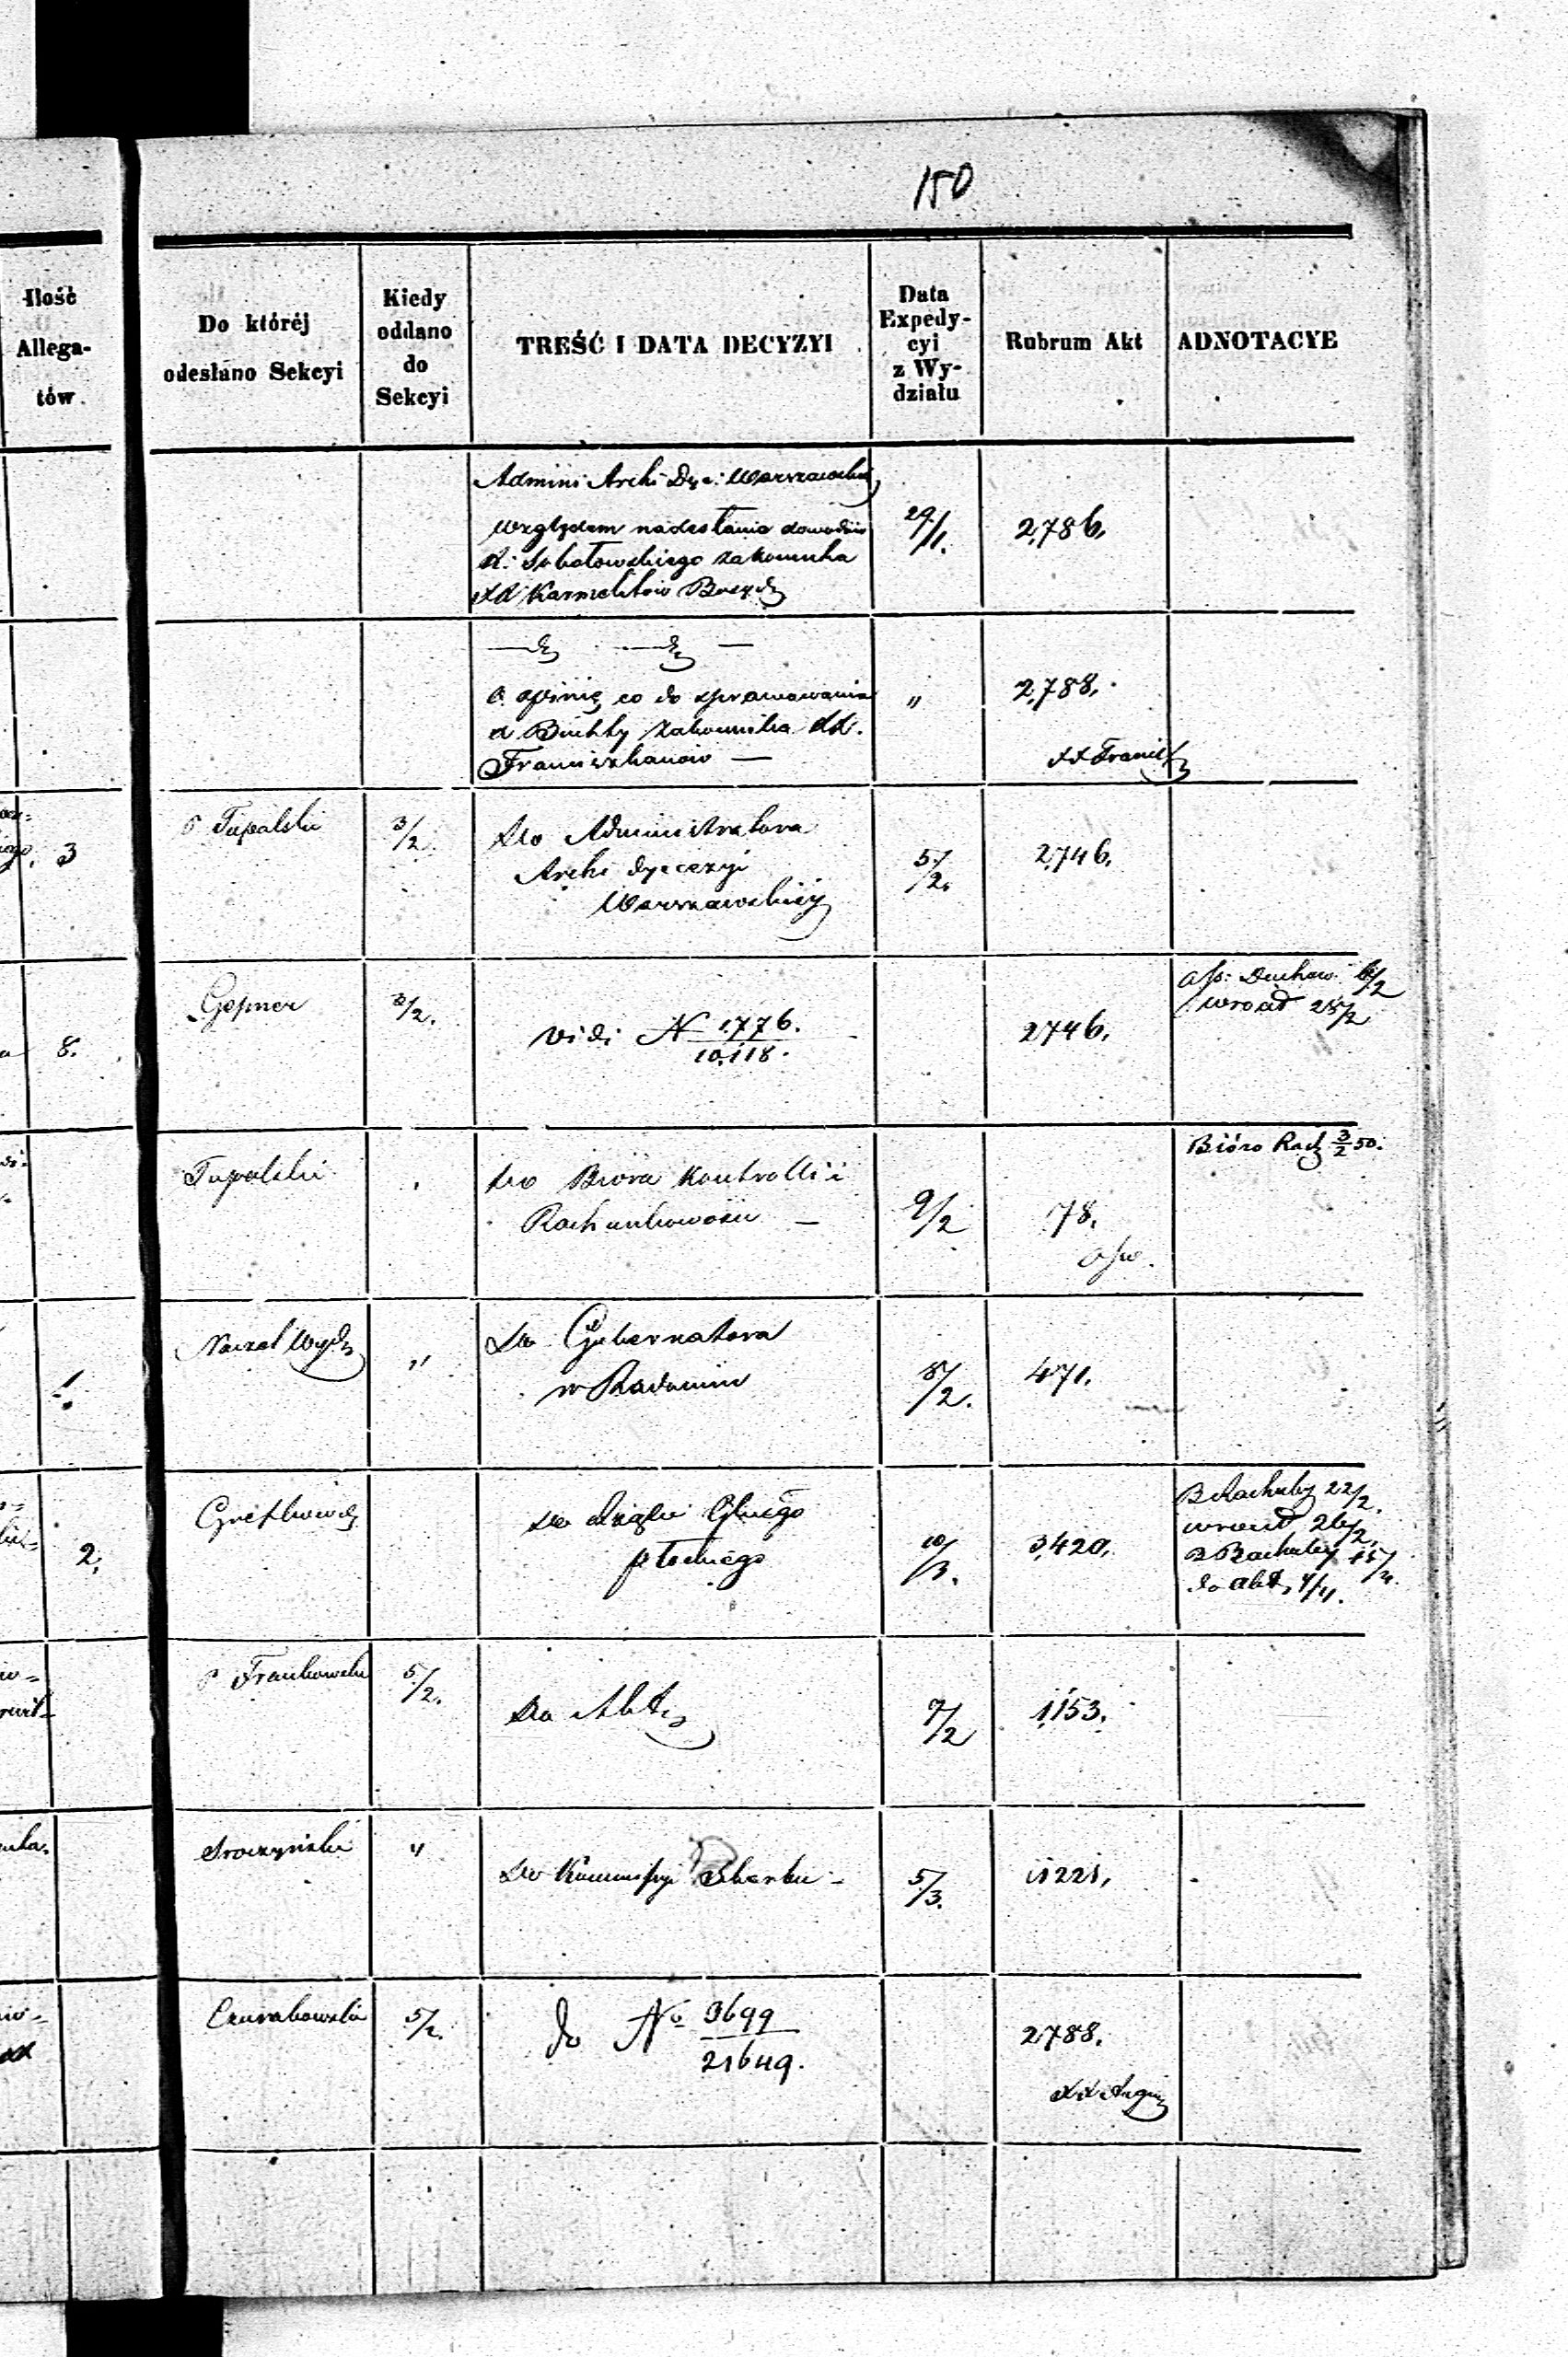 150
Ilość
Allega-
tów.
Do któréj
odesłano Sekcyi
Kiedy
oddano
do
Sekcyi
TREŚĆ I DATA DECYZYI
Data
Expedy-
cyi
z Wy-
działu
Rubrum Akt
ADNOTACYE
Admini Archi Dyc: Warszawskiéj
względem nadesłania dowodów
X: Sobotowskiego zakonnika
XX Karmelitów Bosych
29/1.
2,786.
o opinię co do sprawowania
X Zakonnika XX.
Franciszkanów —
"
2,788.
XX Franci
3
P Tupalski
3/2
Do Administratora
Archi dyecezyi
Warszawskiéj
5/2.
2,746.
8.
Gepner
3/2.
vidi N 1776.
10,118.
2746.
Duchow. 6/2
wrócił 25/2
Tupalski
Do Bióra Kontrolli i
Rachunkowości —
9/2
78.
Bióro Rach 3/2 50.
1.
Naczel Wydz
"
Do Gubernatora
w Radomiu
5/2.
471.
2.
Do
płockiego
10/3.
3,420.
22/2.
wrócił 26/2
do akt 4/4.
P Frankowski
5/2.
Do Akt
7/2
1,153.
Sroczyński
"
Do Kommissyi Skarbu —
5/3.
11221.
5/2.
do No 3699
21649.
2788.
XX